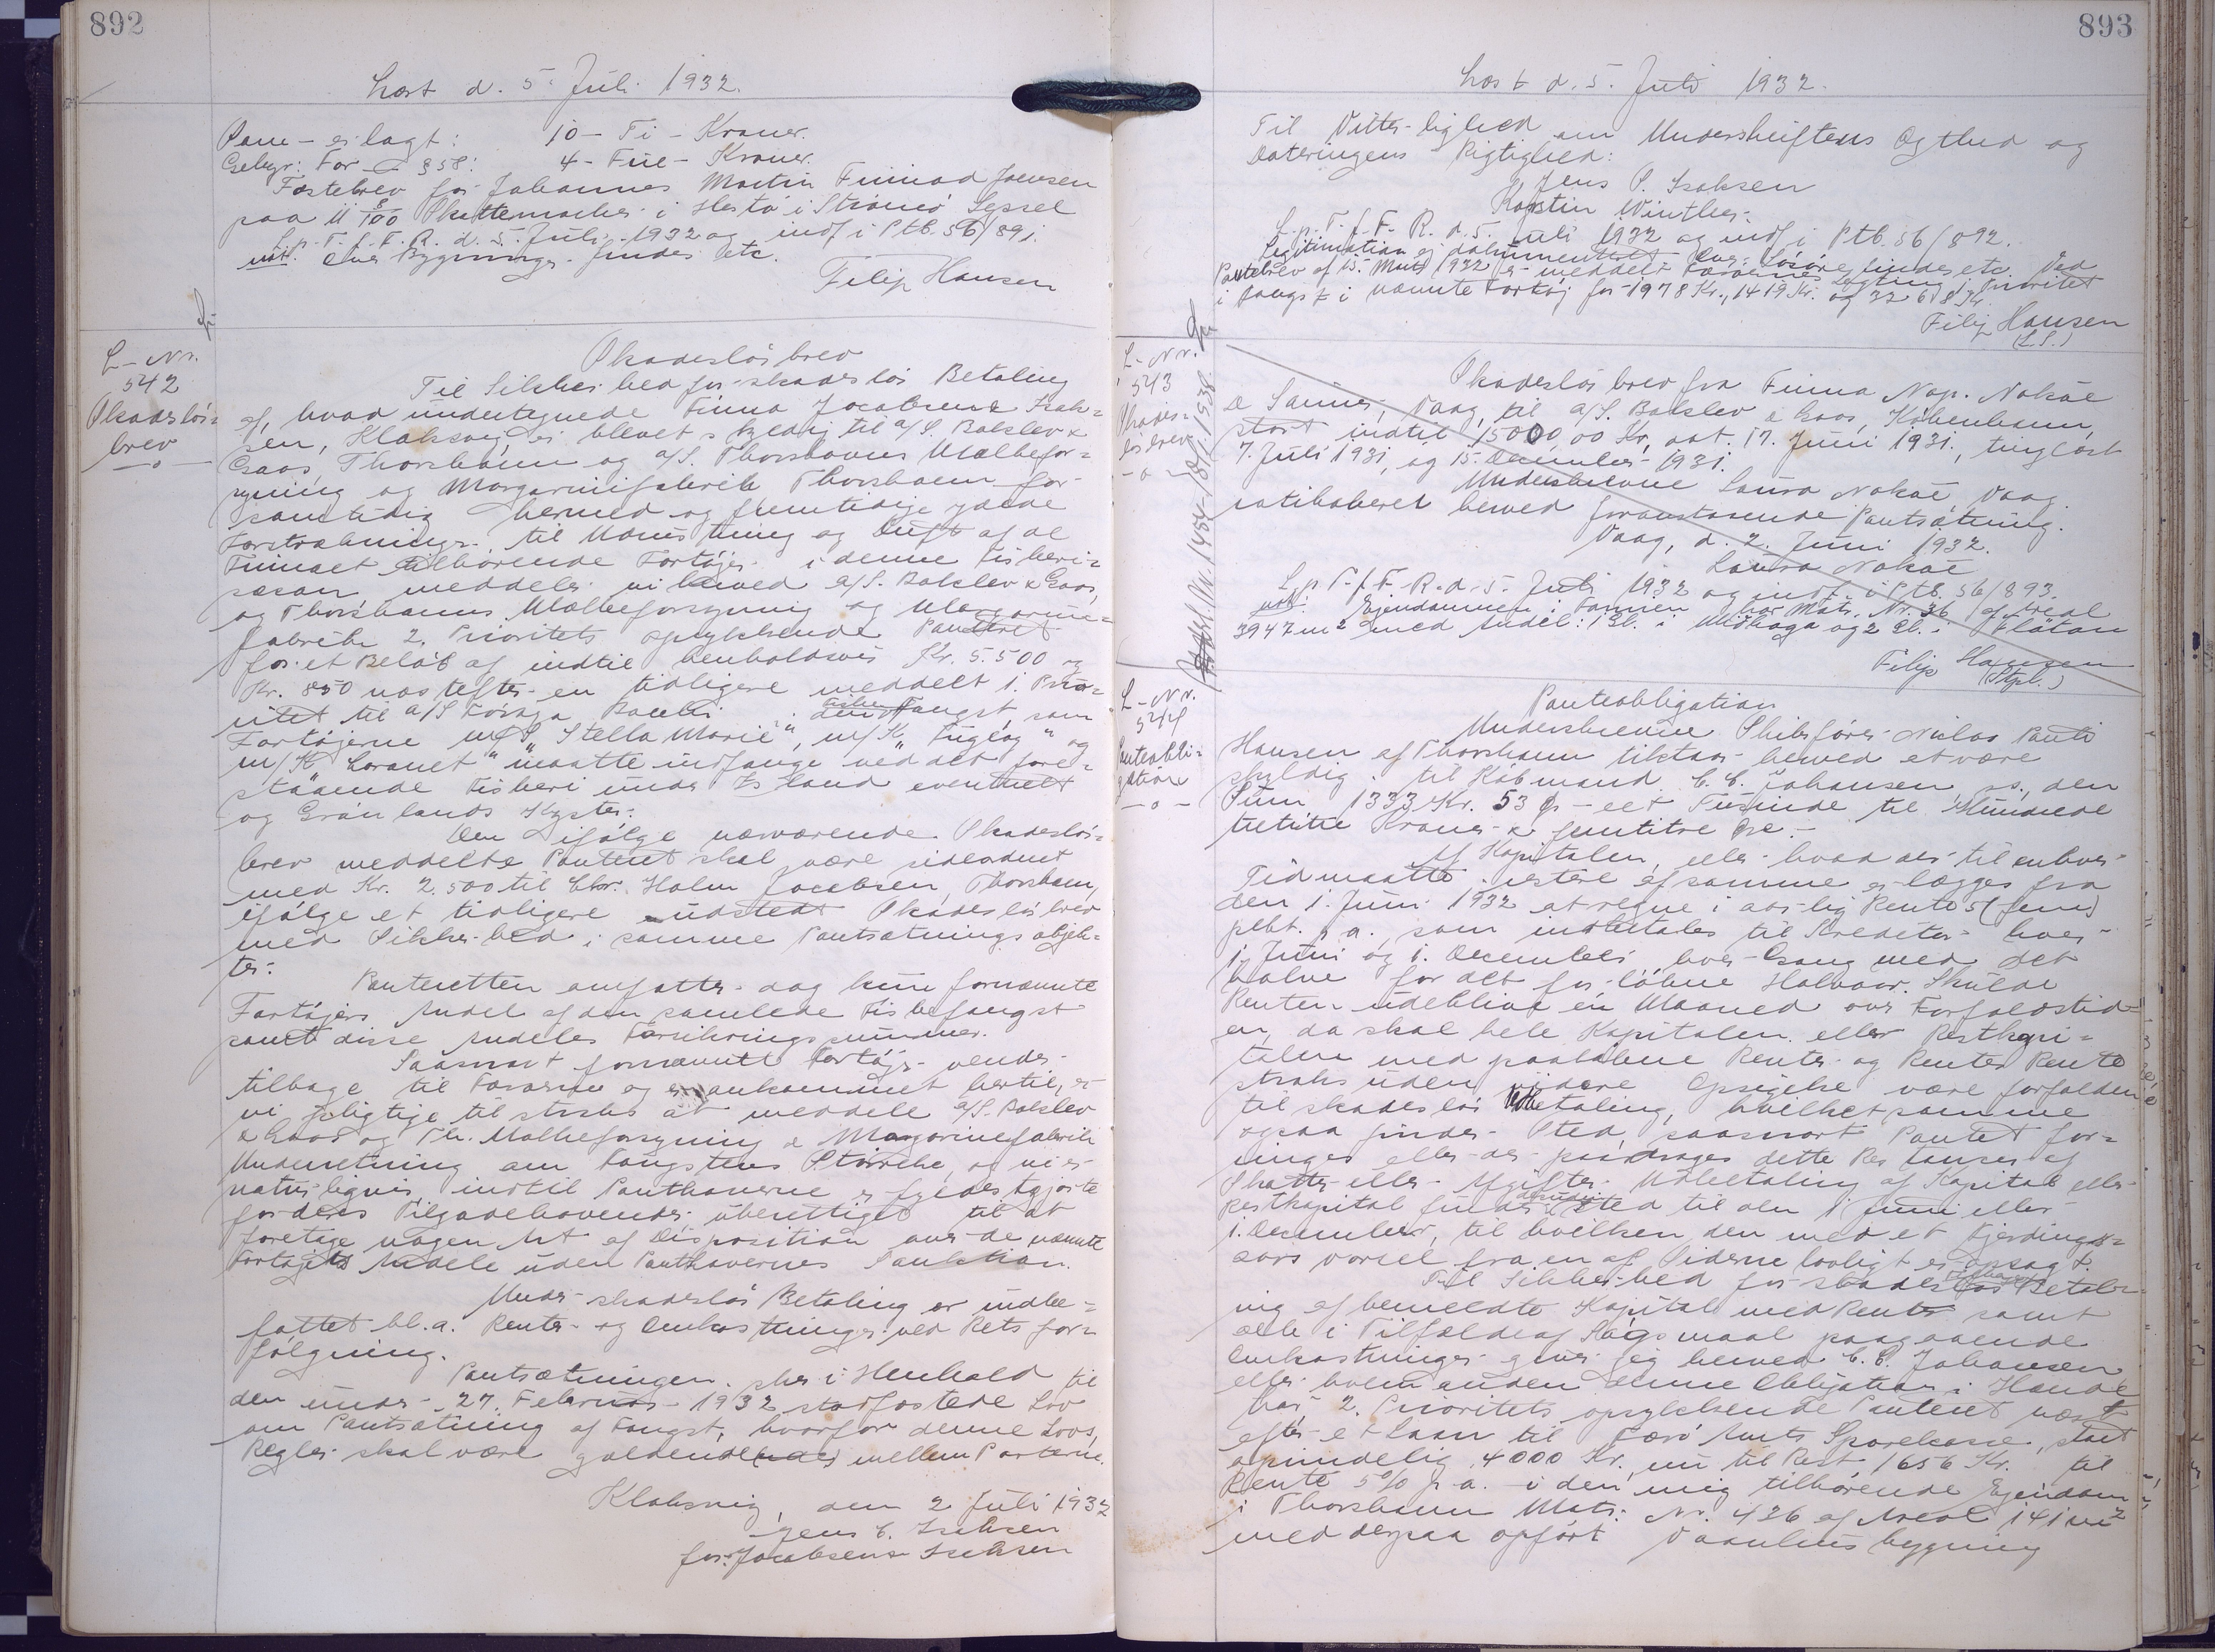 892
Læst d. 5. Juli 1932.
Pane- erlagt: 10 - Ti - Kroner.
Gebyr: For § 58: 4 - Fire - Kroner.
Fæstebrev for Johannes Martin Joensen
paa 11 8/100 Skattemarker i i Strømø Syssel
L.p.T.f.F.R. d. 5. Juli 1932 og indf i Ptb. 56/891.
not: Bygninger findes etc.
Filip Hansen
L-Nr.
542
Skadesløs-
brev
-o-
Skadesløsbrev
Til Sikkerhed for skadesløs Betaling
af, hvad undertegnede Firma Jacobsen & Isak-
sen, Klaksvig, er blevet skyldig til A/S. Balslev &
Gaos, Thorshavn og A/S. Thorshavns Mælkefor-
syning og Margarinefabrik Thorshavn for
samtidig hermed og fremtidige ydede
Forstrækninger til Udrustning og Drift af de
Firmaet tilhørende Fartøjer i denne Fiskeri-
sæson, meddeler vi herved A/S. Balslev & Gaos,
og Thorshavns Mælkeforsyning og Margarine-
fabrik 2. Prioritets oprykkende Panteret
for et Beløb af indtil henholdsvis Kr. 5.500 og
Kr. 850 næstefter en tidligere meddelt 1. Prio-
ritet til A/S Føroya Banki i den Fangst, som
Fartøjerne "Stella Marie", m/K "Fuglog" og
m/K "Loranet" maatte indfange ved det fore-
staaende Fiskeri under Island eventuelt
og Grønlands Kyster.
Den ifølge nærværende Skadesløs-
brev meddelte Panteret skal være sideordnet
med Kr. 2.500 til Chr. Holm Jacobsen, Thorshavn,
ifølge et tidligere udstedt Skadesløsbrev
med Sikkerhed i samme Pantsætningsobjek-
ter.
Panteretten omfatter dog kun fornævnte
Fartøjers Andel af den samlede Fiskefangst
samt disse Andeles Forsikringssummer.
Saasnart fornævnte Fartøjer vender
tilbage til Færøerne og er ankommet hertil, er
vi pligtige til straks at meddele A/S. Balslev
& Gaos og Th. Mælkeforsyning & Margarinefabrik
Underretning om Fangstens Størrelse, og vi er
naturligvis, indtil Panthaverne er fyldestgjorte
for deres Tilgodehavender uberettiget til at
foretage nogen Art af Disposition over de nævnte
Fartøjers Andele uden Panthavernes Sanktion.
Under skadesløs Betaling er indbe-
fattet bl.a. Renter og Omkostninger ved Retsfor-
følgning.
Pantsætningen sker i Henhold til
den under 27. Februar 1932 stadfæstede Lov
om Pantsætning af Fangst, hvorfor denne Lovs,
Regler skal være gældende mellem Parterne.
Klaksvig, den 2 Juli 1932
Jens C. Isaksen
for Jacobsen & Isaksen
893
Læst d. 5. Juli 1932.
Til Vitterlighed om Underskriftens Ægthed og
Dateringens Rigtighed:
Jens P. Isaksen
Karstin Winther.
L.p.T.f.F.R. d. 5. Juli 1932 og indf i Ptb. 56/892.
Legitimation ej dokumenteret. Løsøre findes etc. Ved
Pantebrev af 15. 1932 er meddelt Færøernes Lagting 1. Prioritet
i Fangst i nævnte Fartøj for 1978 Kr., 1419 Kr. og 3268 Kr.
Filip Hansen
(L.S.)
L-Nr.
543
Skades-
løsbrev
-o-
Skadesløsbrev fra Firma Nap. Nolsøe
& Sønner, Vaag, til A/S. Balslev & Gaos, København,
stort indtil 15000,00 Kr, dat. 17. Juni 1931, tinglæst
7. Juli 1931, og 15. December 1931.
Underskrevne Laura Nolsøe, Vaag
ratihaberer herved foranstaaende Pantsætning.
Vaag, d. 2. Juni 1932.
Laura Nolsøe
L.p.T.f.F.R. d. 5. Juli 1932 og indf. i Ptb. 56/893.
not: Ejendommen i har Matr. Nr. 36 af Areal
3947 m2 med Andel: 1 Sl. i Midhaga og 2 Sl. i Flatan
Filip Hansen
(Stpl.)
L-Nr.
544
Panteobli-
gation
-o-
Panteobligation
Underskrevne Skibsfører Niclas Pauli
Hansen af Thorshavn tilstaar herved at være
skyldig til Købmand C. C. Johansen ss., den
Sum 1333 Kr. 53 Ø - eet Tusinde tre Hundrede
tretitre Kroner & femtitre Øre.-
Af Kapitalen, eller hvad der til enhver
Tid maatte restere af samme erlægges fra
den 1. Juni 1932 at regne i aarlig Rente 5 (fem)
pCt. p.a. som indbetales til Kreditor hver
1. Juni og 1. December hver Gang med det
halve for det forløbne Halvaar. Skulde
Renten udeblive en Maaned over Forfaldstid-
en, da skal hele Kapitalen eller Restkapi-
talen med paaløbne Renter og Renters Rente
straks uden videre Opsigelse være forfalden
til skadesløs Udbetaling, hvilket samme
ogsaa finder Sted, saasnart Pantet for-
ringes eller der paadrages dette Restancer af
Skatter eller Afgifter. Udbetaling af Kapital eller
Restkapital finder desuden Sted til den 1 Juni eller
1. December, til hvilken den med et Fjerdings-
aars Varsel fra en af Siderne lovligt er opsagt.
Til Sikkerhed for skadesløs Betaling
af bemeldte Kapital med Rente samt
alle i Tilfælde af Søgsmaal paagaaende
Omkostninger giver jeg herved C. C. Johansen
eller hvem anden denne Obligation i Hænde
har, 2. Prioritets oprykkende Panteret næst
efter et Laan til Færø Amts Sparekasse, stort
oprindelig 4000 Kr., nu til Rest 1656 Kr. til
Rente 5% p.a. i den mig tilhørende Ejendom
i Thorshavn Matr. Nr. 426 af Areal 141 m2
med derpaa opført Vaaningsbygning